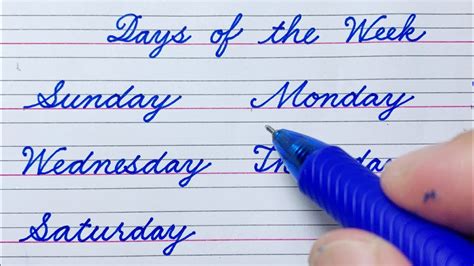 Days of the Week
Sunday Monday
Wednesday
Saturday